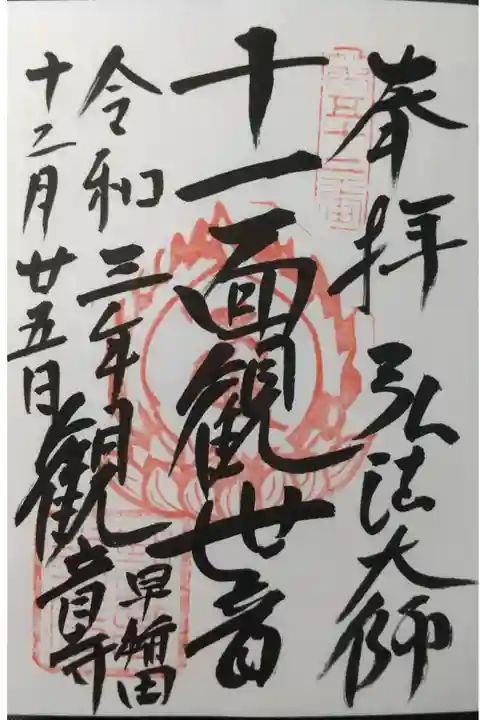 奉拝 弘法大師
第五十二番
十一面観世音
令和三年
十二月廿五日
早稲田
観音寺